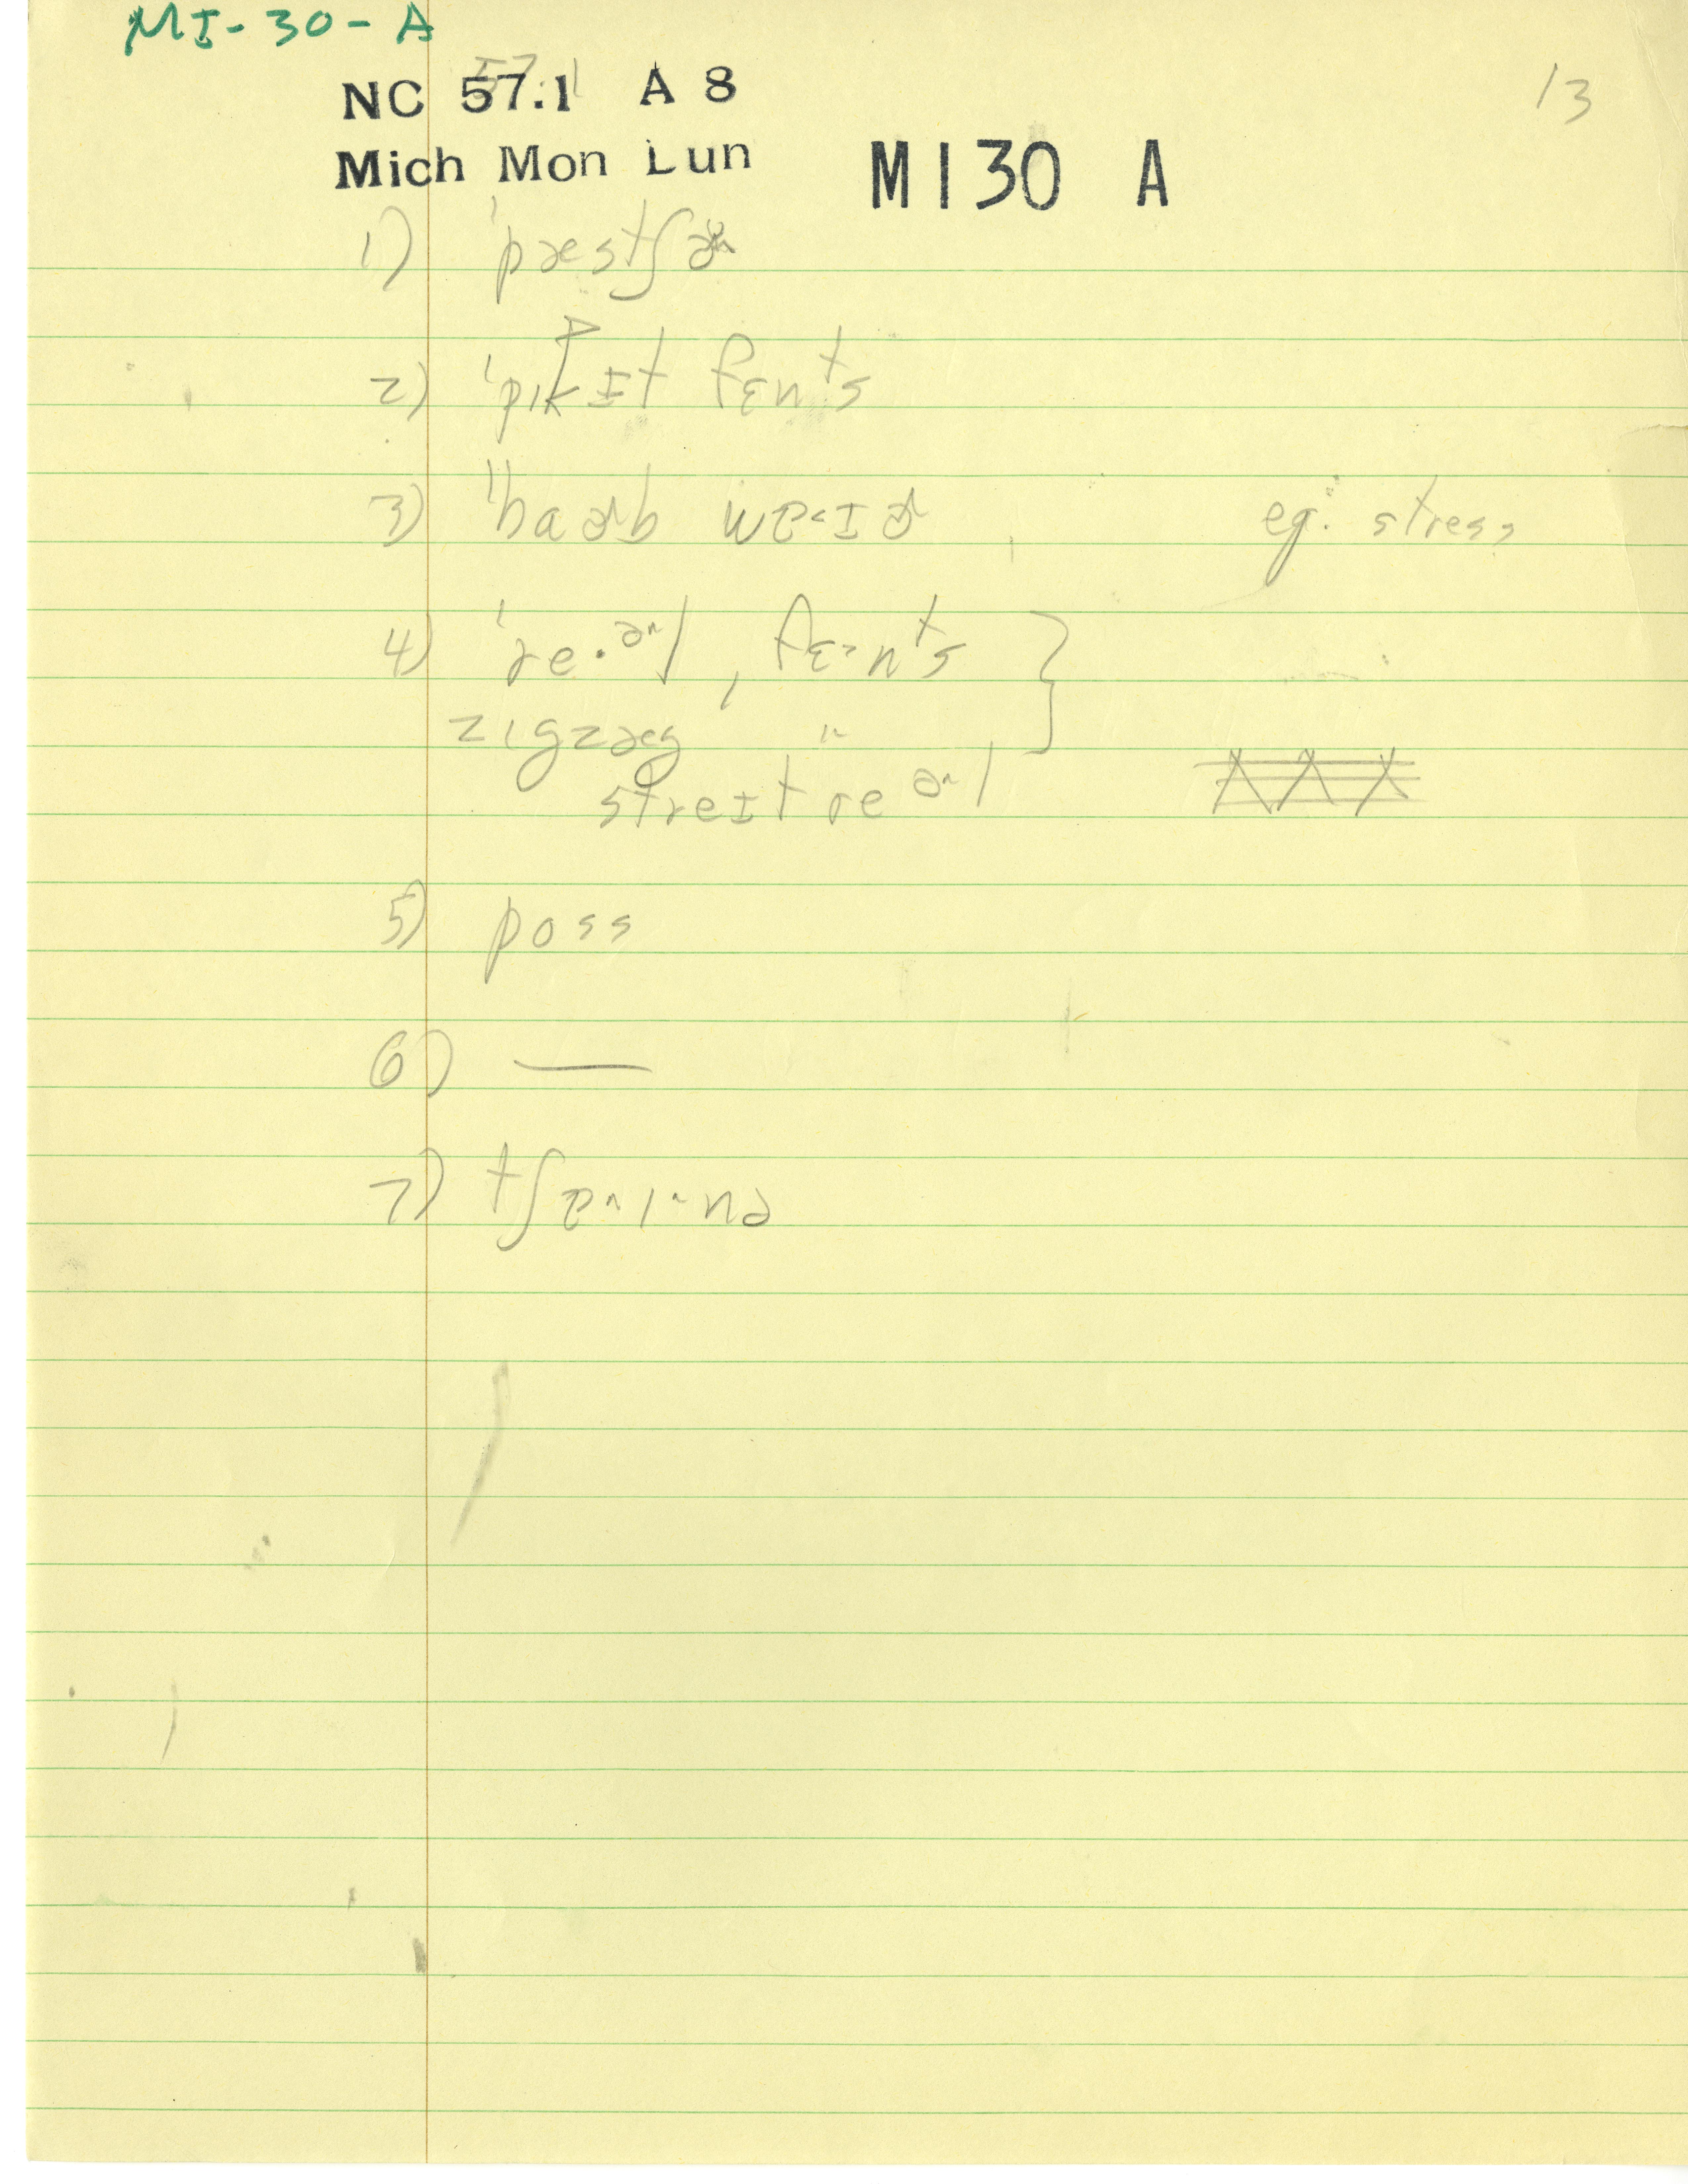 MI-30-A
13
NC 57.1 A 8
Mich Mon Lun
MI30 A
1) ˈpæstʃɚ
2) ˈpɪkɪt fɛnᵗs
3) ˈbaɚb eg. stress
4) ˈre·ɚl, fɛ˃nᵗs
zɪgzæg "
streɪt reɚl
5) poss
6) —
7)